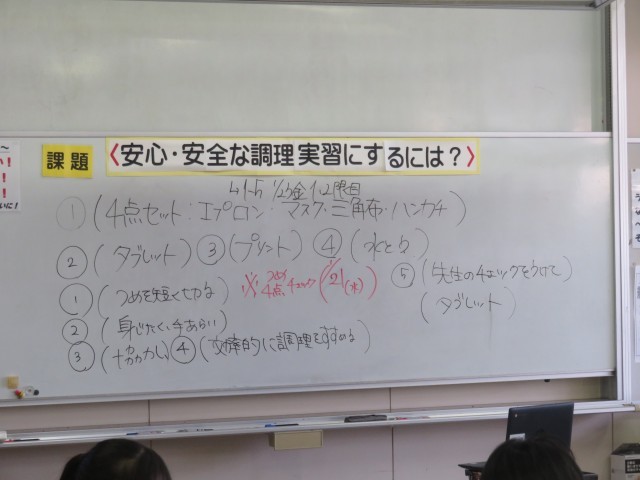 課題
〈安心・安全な調理実習にするには？〉
1/23金 1・2限目
① (4点セット：エプロン・マスク・三角布・ハンカチ)
② (タブレット) ③ (プリント) ④ (水とう)
① (つめを短く切る)
※つめ 4点チェック (1/21(水))
⑤ (先生のチェックをうけて)
(タブレット)
② (身じたく、手あらい)
③ (協力し) ④ (効率的に調理をすすめる)